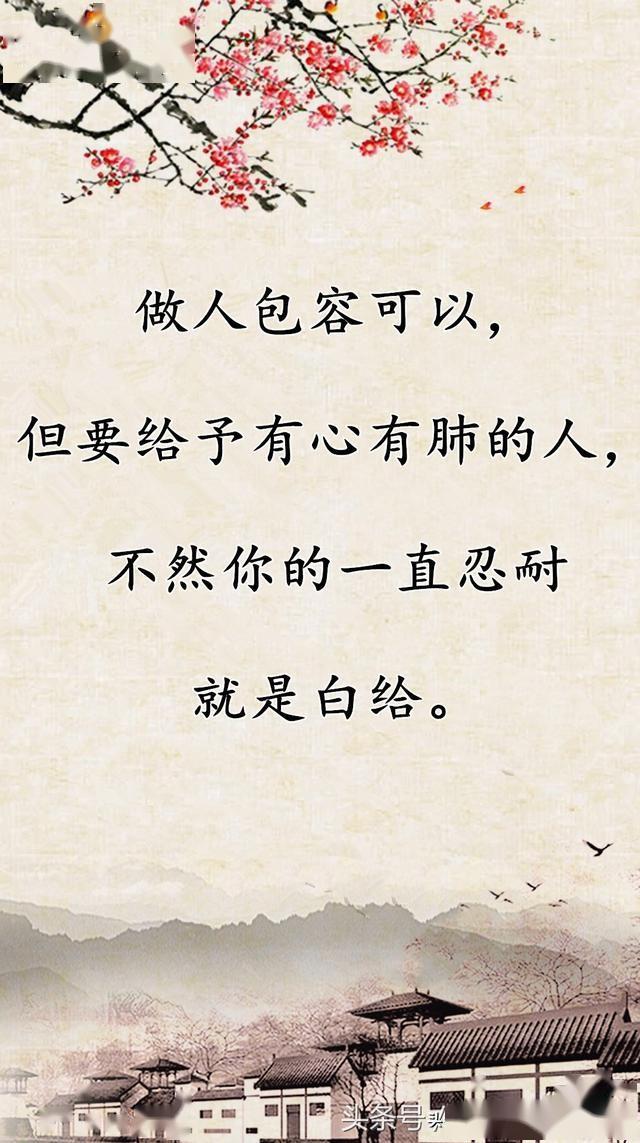 做人包容可以，
但要给予有心有肺的人，
不然你的一直忍耐
就是白给。
头条号